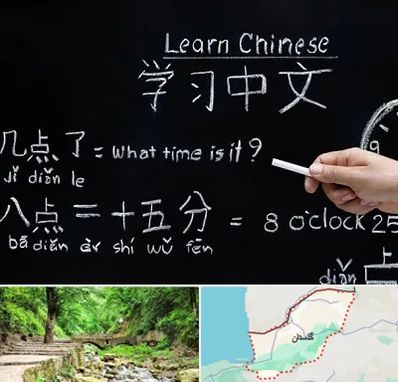 Learn Chinese
学习中文
几点了 = What time is it?
Jǐ diǎn le
八点二十五分 = 8 o'clock 25
bā diǎn èr shí wǔ fēn
9
上
diǎn
گلستان